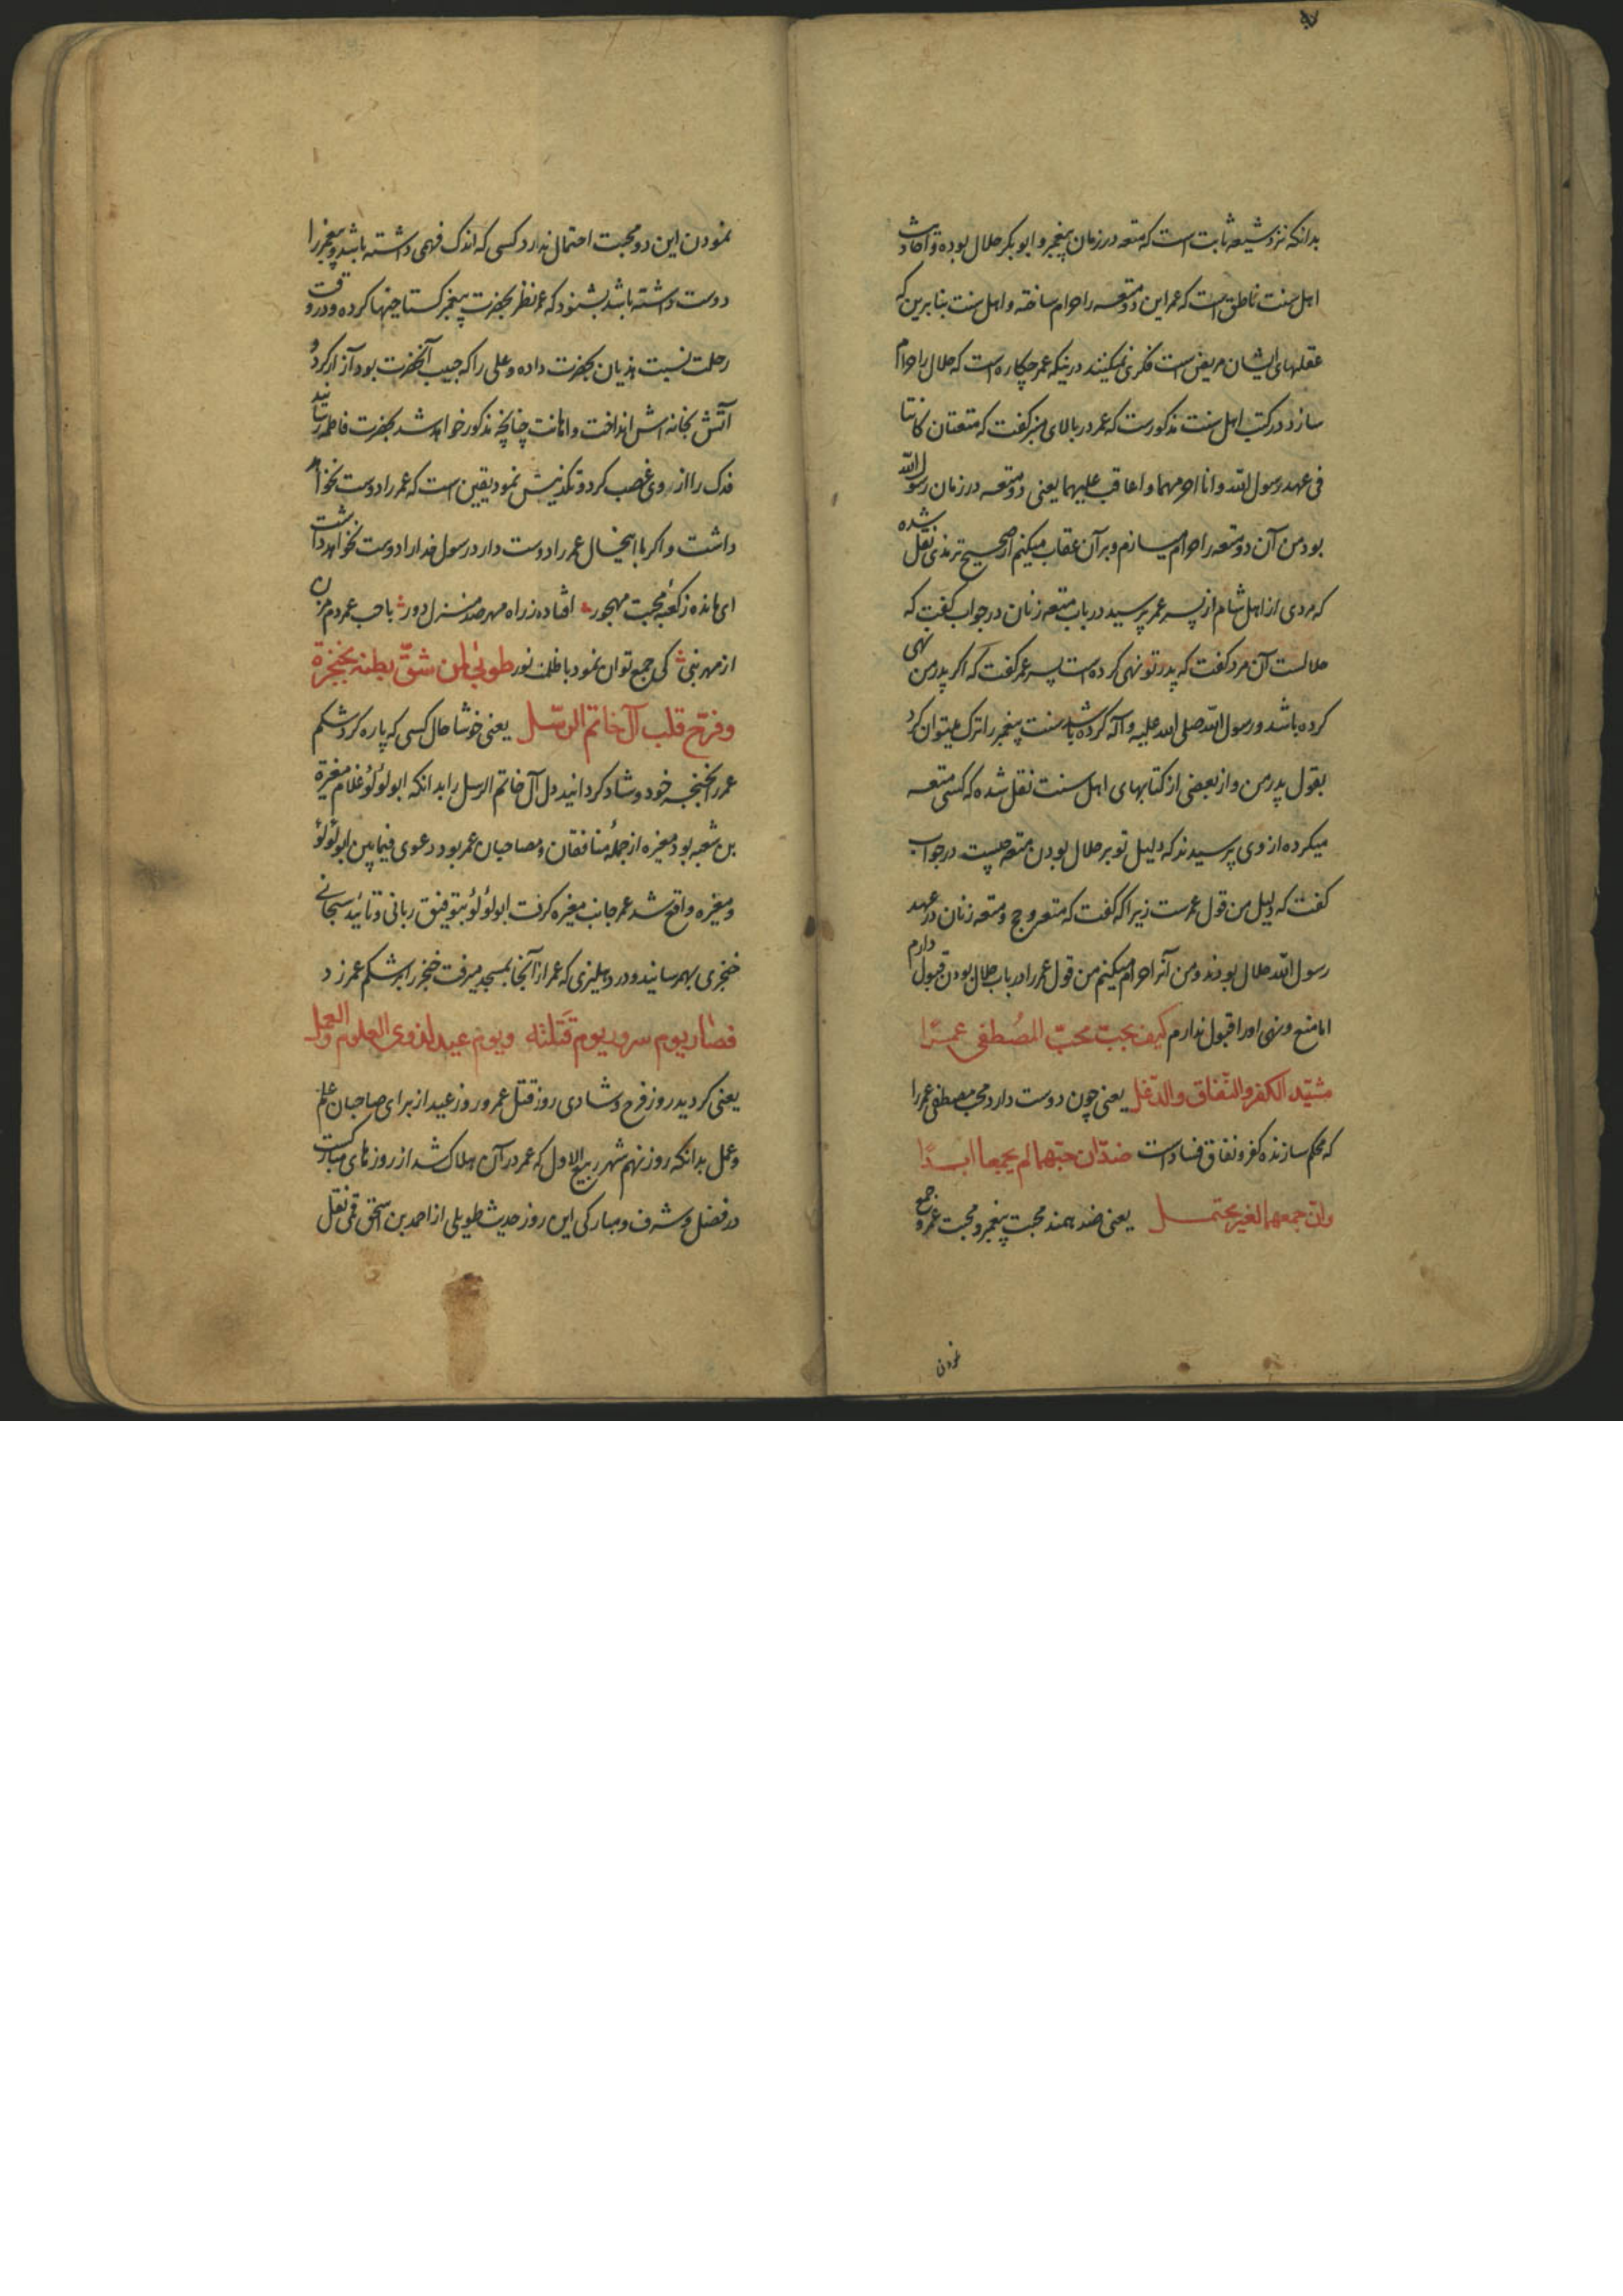 بدانکه نزد شیعه ثابت است که متعه در زمان پیغمبر و ابوبکر حلال بوده و احادیث
اهل سنت ناطق است که عمر این دو متعه را حرام ساخته و اهل سنت بنابرین که
عقلهای ایشان مریض است فکری نمیکنند درینکه عمر چکاره است که حلال را حرام
سازد و در کتب اهل سنت مذکورست که عمر در بالای منبر گفت که متعتان کانتا
فی عهد رسول الله و انا احرمهما و اعاقب علیهما یعنی دو متعه در زمان رسول الله
بود من آن دو متعه را حرام میسازم و بر آن عقاب میکنم از صحیح ترمذی نقل شده
که مردی از اهل شام از پسر عمر پرسید در باب متعه زنان در جواب گفت که
حلالست آن مرد گفت که پدر تو نهی کرده است پسر عمر گفت که اگر پدر من نهی
کرده باشد و رسول الله صلی الله علیه و آله کرده باشد سنت پیغمبر را ترک نمیتوان کرد
بقول پدر من و از بعضی از کتابهای اهل سنت نقل شده که کسی متعه
میکرده از وی پرسیدند که دلیل تو بر حلال بودن متعه چیست در جواب
گفت که دلیل من قول عمرست زیرا که گفت که متعه حج و متعه زنان در عهد
رسول الله حلال بودند و من آنرا حرام میکنم من قول عمر را در باب حلال بودن قبول دارم
اما منع و نهی او را قبول ندارم کیف یحبّ محبّ المصُطفی عمرًا
مشیّد الکفر والنّفاق والدّغل یعنی چون دوست دارد محب مصطفی عمر را
که محکم سازنده کفر و نفاق و فسادست ضدّان حبّهما لم یجمعا ابدًا
وانّ جمعهما لغیر محتمل یعنی ضد همند محبت پیغمبر و محبت عمر و جمع
نمودن
نمودن این دو محبت احتمال ندارد کسی که اندک فهمی داشته باشد و پیغمبر را
دوست داشته باشد بشنود که عمر نظر بحضرت پیغمبر گستاخیها کرده و در وقت
رحلت نسبت هذیان بحضرت داده و علی را که حبیب آنحضرت بود آزار کرد و
آتش بخانه اش انداخت و اهانت چنانچه مذکور خواهد شد بحضرت فاطمه رسانید
فدک را از روی غصب کرد و تکذیبش نمود یقین است که عمر را دوست نخواهد
داشت و اگر با اینحال عمر را دوست دارد رسول خدا را دوست نخواهد داشت
ای مانده ز کعبه محبت مهجور افتاده ز راه مهر صد منزل دور با حب عمر دم مزن
از مهر نبی کی جمع توان نمود با ظلمت نور طوبی لمن شقّ بطنه بخنجرة
وفرّح قلب آل خاتم الرسل یعنی خوشا حال کسی که پاره کرد شکم
عمر را بخنجر خود و شاد گردانید دل آل خاتم الرسل را بدانکه ابولؤلؤ غلام مغیرة
بن شعبه بود و مغیره از جملهٔ منافقان و مصاحبان عمر بود دعوی فیما بین ابولؤلؤ
و مغیره واقع شد عمر جانب مغیره گرفت ابولؤلؤ بتوفیق ربانی و تائید سبحانی
خنجری بهم رسانید و در دهلیزی که عمر از آنجا بمسجد میرفت خنجر را بر شکم عمر زد
فصار یوم سرور یوم قتلته ویوم عید لذوی العلوم والعمل
یعنی گردید روز فرح و شادی روز قتل عمر و روز عید از برای صاحبان علم
و عمل بدانکه روز نهم شهر ربیع الاول که عمر در آن هلاک شد از روزهای مبارکست
در فضل و شرف و مبارکی این روز حدیث طویلی از احمد بن اسحق قمی نقل